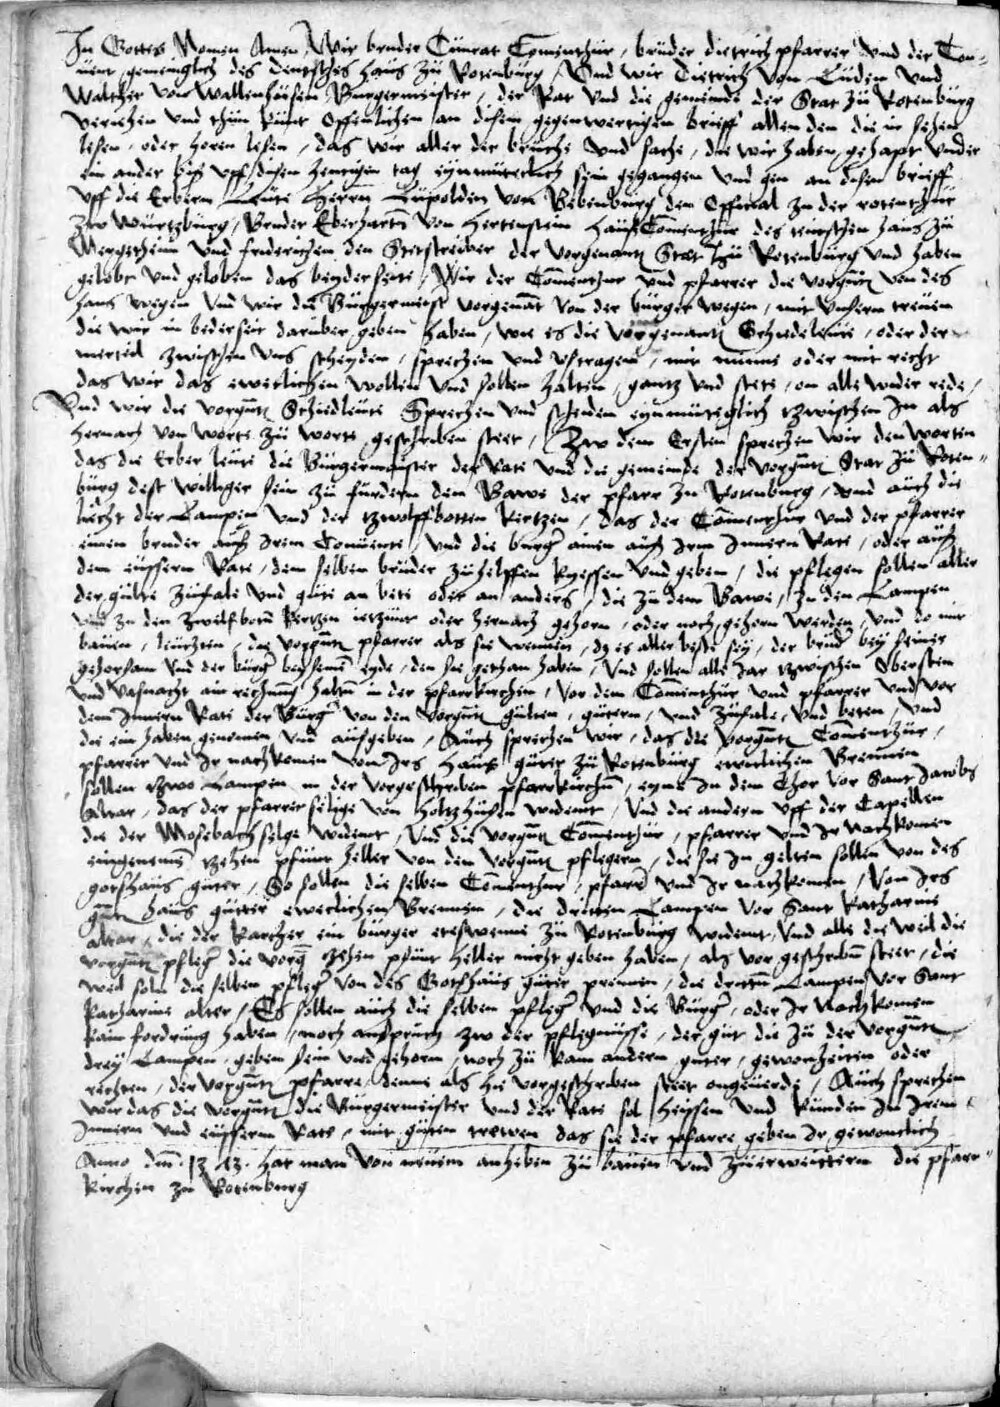 In Gottes Namen Amen Wir bruder Cunrat Comenthür, brüder dietrich pfarrer und der Con¬
uent gemeinglich des deutsches Haüs zü Rotenbürg, Vnd wir Dietrich von Lüden Vnd
Walther von Wallenhüsen Burgermeister, der Rat vnd die gemeinde der Stat zü Rotenbürg
Veriehen vnd thün künt offenlichen an disem gegenwertigen brieff allen den die in sehen
lesen, oder horen lesen, das wir aller der brüche vnd sache, die wir haben gehapt vnder
ein ander biß vff disen heutigen tag eynmüteclich sein gegangen vnd gen an disen brieff
vff die Erbern Leüte Herrn Lüpolden von Bebenbürg den Official zu der rotenthür
zw Würtzbürg, Bruder Eberharten von Hertenstein Hauß Comenthür des teutschen haüs zü
Mergetheim vnd friderichen den Statschreiber der vorgenant Stat zü Rotenbürg vnd haben
gelobt vnd geloben das beyderseite, Wir der Comenthur vnd pfarrer die vorgnt von des
Haus wegen vnd wir die Bürgermeist vorgenat von der bürger wegen, mit vnsern treuen
die wir in bederseit darüber geben haben, wie es die vorgenant Schiedeleüte, oder der
merteil zwischen vns scheyden, sprechen vnd vßtragen, mit minne oder mit recht
das wir das ewiclichen wollen vnd sollen halten, gantz vnd stete, on alle wider rede,
Vnd wir die vorgnt Schiedleüte Sprechen vnd scheiden eynmüteglich tzwischen In als
hernach von worte zü worte geschriben steet, Zw dem Ersten sprechen wir den worten
das die Erber leüte die Bürgermaister der Rate vnd die gemeinde der vorgnt Stat zü Roten¬
bürg dest williger sein zü fürdern den Bawe der pfarr zu Rotenburg, vnd auch die
liecht der Lampen vnd der tzwolffbotten kertzen, das der Comenthur vnd der pfarrer
einen bruder auß Irem Conuente, vnd die burger ainen auß Irm Innern Rate, oder auß
dem eüssern Rate, dem selben brüder zühelffen kyesen vnd geben, die pflegen sollen aller
der gülte züfale vnd güte an bete oder an anders, die zü dem Bawe, zu den Lampen
vnd zu den zwelfbotn kertzen ietzünt oder hernach gehorn, oder noch gehorn werden, vnd do mit
bauen, leüchten, die vorgnt pfarrer als sie wennen, dz es aller beste sey, der brüder bey seiner
gehorsam vnd der bürger bey seinem eyde, den sie gethan haben, Vnd sollen alle Jar tzwischen Obersten
vnd vaßnacht ain rechnung haltn in der pfarrkirchen, vor dem Comenthür vnd pfarrer vnd vor
dem Innern Rate der Bürger von den vorgnt gülten, gütern, vnd züfale, vnd beten, vnd
die ein haben genomen vnd aüsgeben, Auch sprechen wir, das die vorgnt Comenthür,
pfarrer vnd Ir nachkomen von Irs Hauß güter zü Rotenbürg ewiclichen Brennen
sollen tzwo Lampen in der vorgeschriben pfarrkirchn, eyne in dem Chor vor Sant Jacobs
Altar, das der pfarrer selige von Holtzhüsen widemt, Vnd die andern vff der Capellen
die der Mosebach selge widemt, Vnd die vorgnt Comenthür, pfarrer vnd Ir Nachkomen
eingenemen tzehen pfünt heller von den vorgnt pflegern, die sie In gelten sollen von des
gotshaüs güter, So sollen die selben Comenthur, pfarrer vnd Ir nachkomen, Von Irs
gnt haüs gütter ewiclichen Brennen, die dritten Lampen vor Sant Katharine
altar, die der Karcher ein bürger eteswenne zü Rotenbürg widemt, Vnd alle die weil die
vorgnt pfleger die vorg zehen pfünt heller nicht geben haben, als vor geschribn steet, die
weil soln die selben pfleger von des Gotshaüs güter prennen, die dritten Lampen vor Sant
Katharine altar, Es sollen auch die selben pfleger vnd die Bürger, oder Ir Nachkomen
kain fordrung haben, noch anspruch zw der pflegnüsse, der gut die zü der vorgnt
drey Lampen, geben sein vnd gehorn, noch zü kain andern guter, gewonheiten oder
rechten, der vorgnt pfarre, denne als hie vorgeschriben steet ongeuerde, Auch sprechen
wir das die vorgnt die Bürgermeister vnd der Rate sol heyssen vnd künden In Irem
Innern vnd eüssern Rate, mit güten trewen das sie der pfarre geben Ir gewonlich
Anno dm. 1373. hat man von neüem anheben zü baüen vnd züerweittern die pfarr¬
kirchen zu Rotenburg